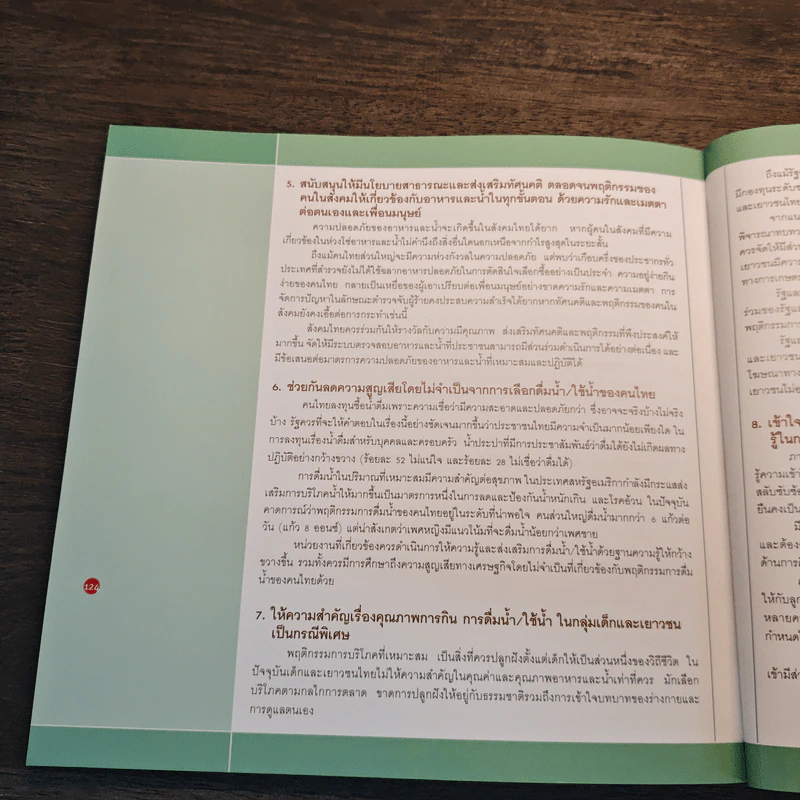 5. สนับสนุนให้มีนโยบายสาธารณะและส่งเสริมทัศนคติ ตลอดจนพฤติกรรมของ
คนในสังคมให้เกี่ยวข้องกับอาหารและน้ำในทุกขั้นตอน ด้วยความรักและเมตตา
ต่อตนเองและเพื่อนมนุษย์
ความปลอดภัยของอาหารและน้ำจะเกิดขึ้นในสังคมไทยได้ยาก หากผู้คนในสังคมที่มีความ
เกี่ยวข้องในห่วงโซ่อาหารและน้ำไม่คำนึงถึงสิ่งอื่นใดนอกเหนือจากกำไรสูงสุดในระยะสั้น
ถึงแม้คนไทยส่วนใหญ่จะมีความห่วงกังวลในความปลอดภัย แต่พบว่าเกือบครึ่งของประชากรทั่ว
ประเทศที่สำรวจยังไม่ได้ใช้ฉลากอาหารปลอดภัยในการตัดสินใจเลือกซื้ออย่างเป็นประจำ ความอยู่ง่ายกิน
ง่ายของคนไทย กลายเป็นเหยื่อของผู้เอาเปรียบต่อเพื่อนมนุษย์อย่างขาดความรักและความเมตตา การ
จัดการปัญหาในลักษณะตำรวจจับผู้ร้ายคงประสบความสำเร็จได้ยากหากทัศนคติและพฤติกรรมของคนใน
สังคมยังคงเอื้อต่อการกระทำเช่นนี้
สังคมไทยควรร่วมกันให้รางวัลกับความมีคุณภาพ ส่งเสริมทัศนคติและพฤติกรรมที่พึงประสงค์ให้
มากขึ้น จัดให้มีระบบตรวจสอบอาหารและน้ำที่ประชาชนสามารถมีส่วนร่วมดำเนินการได้อย่างต่อเนื่อง และ
มีข้อเสนอต่อมาตรการความปลอดภัยของอาหารและน้ำที่เหมาะสมและปฏิบัติได้
6. ช่วยกันลดความสูญเสียโดยไม่จำเป็นจากการเลือกดื่มน้ำ/ใช้น้ำของคนไทย
คนไทยลงทุนซื้อน้ำดื่มเพราะความเชื่อว่ามีความสะอาดและปลอดภัยกว่า ซึ่งอาจจะจริงบ้างไม่จริง
บ้าง รัฐควรที่จะให้คำตอบในเรื่องนี้อย่างชัดเจนมากขึ้นว่าประชาชนไทยมีความจำเป็นมากน้อยเพียงใด ใน
การลงทุนเรื่องน้ำดื่มสำหรับบุคคลและครอบครัว น้ำประปาที่มีการประชาสัมพันธ์ว่าดื่มได้ยังไม่เกิดผลทาง
ปฏิบัติอย่างกว้างขวาง (ร้อยละ 52 ไม่แน่ใจ และร้อยละ 28 ไม่เชื่อว่าดื่มได้)
การดื่มน้ำในปริมาณที่เหมาะสมมีความสำคัญต่อสุขภาพ ในประเทศสหรัฐอเมริกากำลังมีกระแสส่ง
เสริมการบริโภคน้ำให้มากขึ้นเป็นมาตรการหนึ่งในการลดและป้องกันน้ำหนักเกิน และโรคอ้วน ในปัจจุบัน
คาดการณ์ว่าพฤติกรรมการดื่มน้ำของคนไทยอยู่ในระดับที่น่าพอใจ คนส่วนใหญ่ดื่มน้ำมากกว่า 6 แก้วต่อ
วัน (แก้ว 8 ออนซ์) แต่น่าสังเกตว่าเพศหญิงมีแนวโน้มที่จะดื่มน้ำน้อยกว่าเพศชาย
หน่วยงานที่เกี่ยวข้องควรดำเนินการให้ความรู้และส่งเสริมการดื่มน้ำ/ใช้น้ำด้วยฐานความรู้ให้กว้าง
ขวางขึ้น รวมทั้งควรมีการศึกษาถึงความสูญเสียทางเศรษฐกิจโดยไม่จำเป็นที่เกี่ยวข้องกับพฤติกรรมการดื่ม
น้ำของคนไทยด้วย
124
7. ให้ความสำคัญเรื่องคุณภาพการกิน การดื่มน้ำ/ใช้น้ำ ในกลุ่มเด็กและเยาวชน
เป็นกรณีพิเศษ
พฤติกรรมการบริโภคที่เหมาะสม เป็นสิ่งที่ควรปลูกฝังตั้งแต่เด็กให้เป็นส่วนหนึ่งของวิถีชีวิต ใน
ปัจจุบันเด็กและเยาวชนไทยไม่ให้ความสำคัญในคุณค่าและคุณภาพอาหารและน้ำเท่าที่ควร มักเลือก
บริโภคตามกลไกการตลาด ขาดการปลูกฝังให้อยู่กับธรรมชาติรวมถึงการเข้าใจบทบาทของร่างกายและ
การดูแลตนเอง
ถึงแม้รัฐ
มีกองทุนระดับ
และเยาวชนไทย
จากแน
พิจารณาทบทว
ควรจัดให้มีส่ว
เยาวชนมีความ
ทางการเกษตร
รัฐแล
ร่วมของรัฐแล
พฤติกรรมการ
รัฐแ
และเยาวชนไ
โฆษณาทาง
เยาวชนไม่อ
8. เข้าใจ
รู้ในก
ภา
รู้ความเข้า
สลับซับซ้อ
ยืนคงเป็น
และต้อง
ด้านการ
ให้กับลูก
หลายคว
กำหนดใ
เข้ามีส่ว